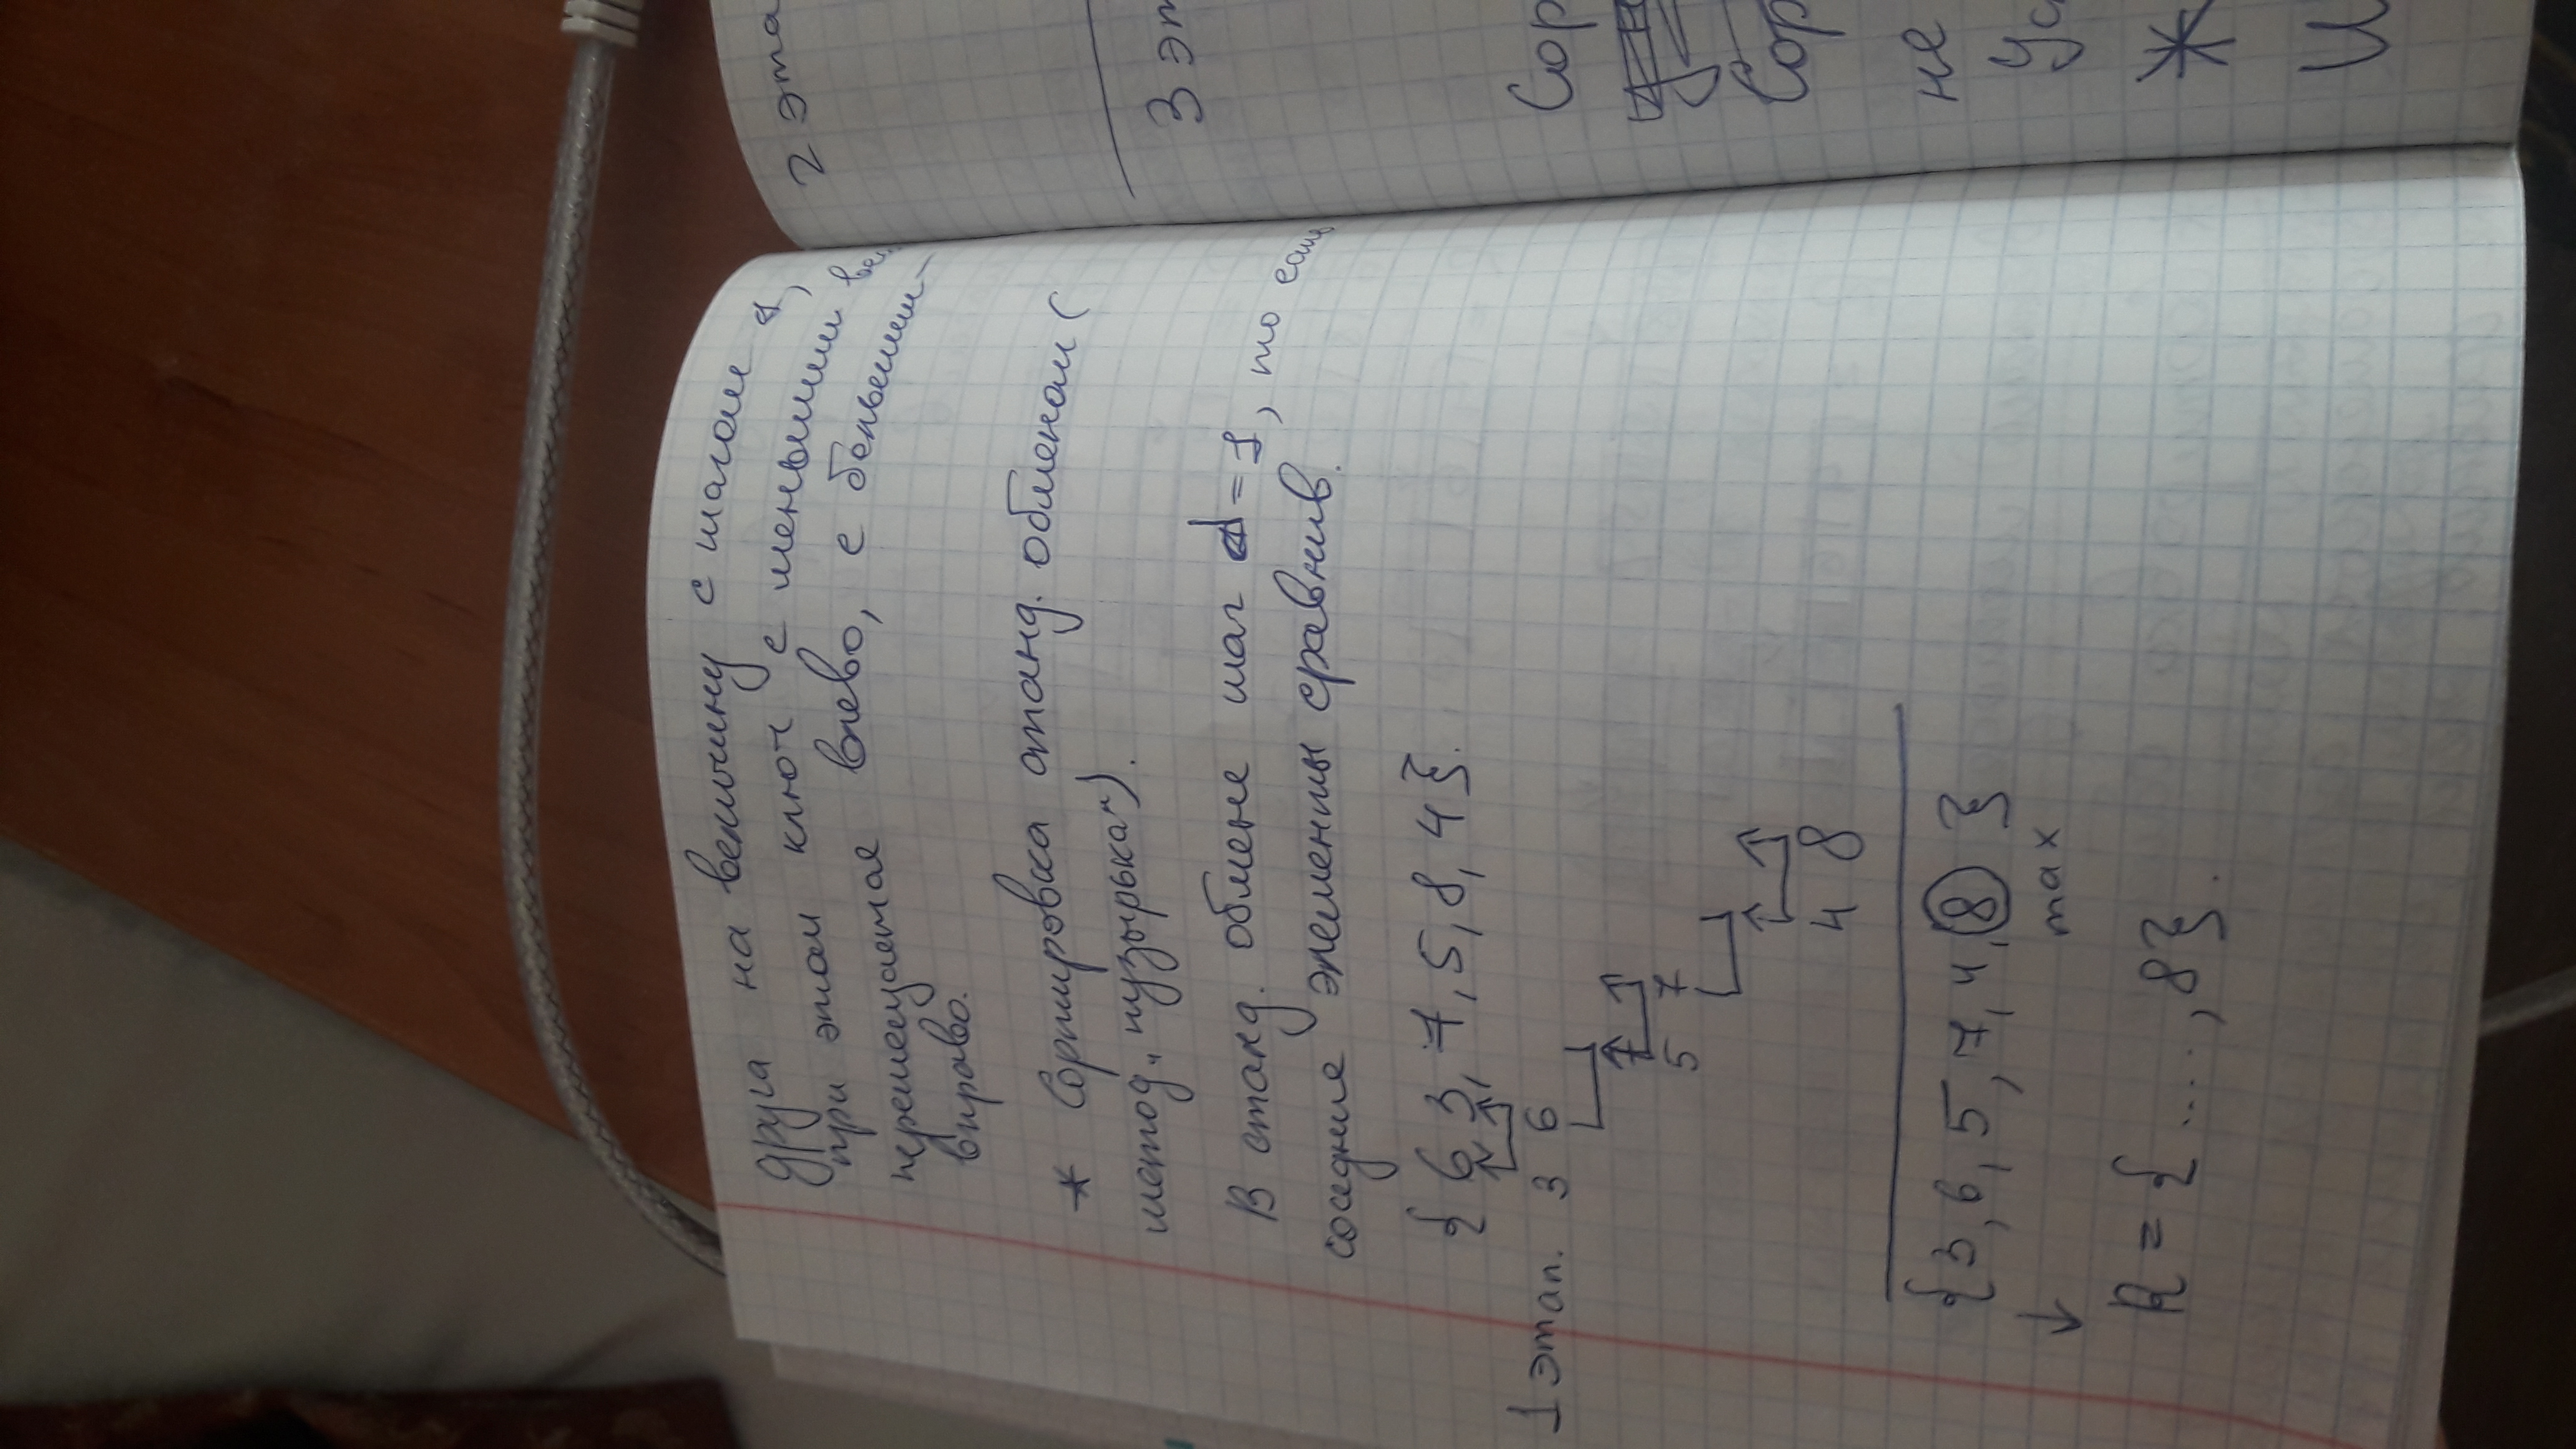 друга на величину с шагом d,
при этом ключ с меньшим вел
перемещается влево, с большим -
вправо.
* Сортировка станд. обменом (
метод „пузырька“).
В станд. обмене шаг d = 1, то есть
соседние элементы сравнив.
{ 6, 3, 7, 5, 8, 4 }.
1 этап. 3 6
7
5 7
4 8
{3, 6, 5, 7, 4, 8 }
max
R = { ...., 8 }.
2 эта
3 эт
Сор
Сор
не
Ус
*